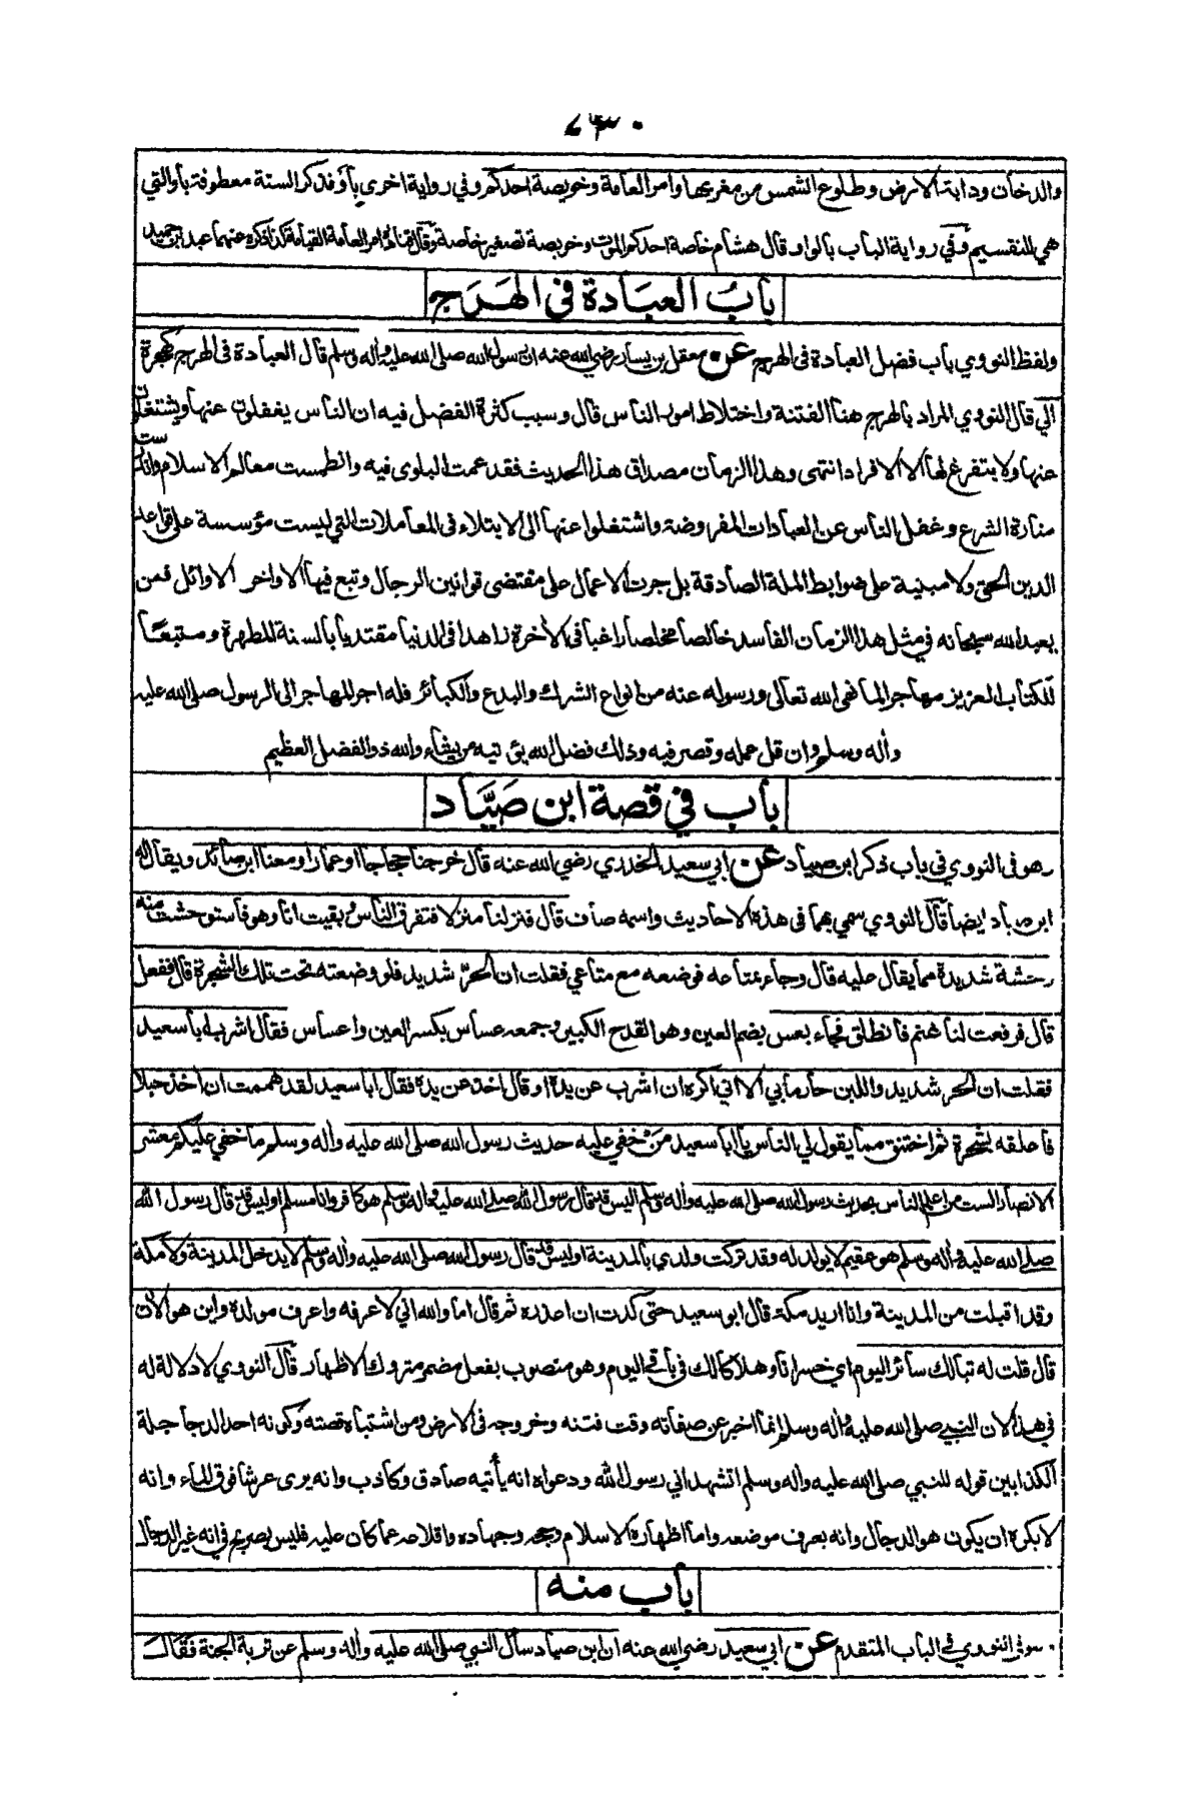 ٧٣٠
والدخان ودابة الارض وطلوع الشمس من مغربها وامر العامة وخويصة احدكم وفي رواية اخرى بأو فذكر الستة معطوفة بأو التي
هي للتقسيم وفي رواية الباب بالواو قال هشام خاصة احدكم الموت وخويصة تصغير خاصة وقال قتادة امر العامة القيامة كذا ذكره عنهما عبد بن حميد
باب العبادة في الهرج
ولفظ النووي باب فضل العبادة في الهرج عن معقل بن يسار رضي الله عنه ان رسول الله صلى الله عليه وأله وسلم قال العبادة في الهرج كهجرة
الي قال النووي المراد بالهرج هنا الفتنة واختلاط امور الناس قال وسبب كثرة الفضل فيه ان الناس يغفلون عنها ويشتغلون
عنها ولا يتفرغ لها الا الافراد انتهى وهذا الزمان مصداق هذا الحديث فقد عمت البلوى فيه وانطمست معالم الاسلام وانكست
منارة الشرع وغفل الناس عن العبادات المفروضة واشتغلوا عنها الى الابتلاء في المعاملات التي ليست مؤسسة على قواعد
الدين الحق ولا مبنية على ضوابط الملة الصادقة بل جرت الاعمال على مقتضى قوانين الرجال وتبع فيها الاواخر الاوائل فمن
يعبد الله سبحانه في مثل هذا الزمان الفاسد خالصا مخلصا راغبا في الأخرة زاهدا في الدنيا مقتديا بالسنة المطهرة ومتبعا
للكتاب العزيز مهاجرا لما نهى الله تعالى ورسوله عنه من انواع الشرك والبدع والكبائر فله اجر المهاجر الى الرسول صلى الله عليه
وأله وسلم وان قل عمله وقصر فيه وذلك فضل الله يؤتيه من يشاء والله ذو الفضل العظيم
باب في قصة ابن صيّاد
وهو في النووي في باب ذكر ابن صياد عن ابي سعيد الخدري رضي الله عنه قال خرجنا حجاجا او عمارا ومعنا ابن صائد ويقال له
ابن صياد ايضا قال النووي سمي بهما في هذه الاحاديث واسمه صاف قال فنزلنا منزلا فتفرق الناس وبقيت انا وهو فاستوحشت منه
وحشة شديدة مما يقال عليه قال وجاء بمتاعه فوضعه مع متاعي فقلت ان الحرّ شديد فلو وضعته تحت تلك الشجرة قال ففعل
قال فرفعت لنا غنم فانطلق فجاء بعس بضم العين وهو القدح الكبير وجمعه عساس بكسر العين واعساس فقال اشرب ابا سعيد
فقلت ان الحر شديد واللبن حار ما بي الا اني اكره ان اشرب عن يده او قال اخذ عن يده فقال ابا سعيد لقد هممت ان اخذ حبلا
فاعلقه بشجرة ثم اختنق مما يقول لي الناس يا ابا سعيد من خفي عليه حديث رسول الله صلى الله عليه وأله وسلم ما خفي عليكم معشر
الانصار الست من اعلم الناس بحديث رسول الله صلى الله عليه وأله وسلم اليس قد قال رسول الله صلى الله عليه وأله وسلم هو كافر وانا مسلم اوليس قد قال رسول الله
صلى الله عليه وأله وسلم هو عقيم لا يولد له وقد تركت ولدي بالمدينة اوليس قد قال رسول الله صلى الله عليه وأله وسلم لا يدخل المدينة ولا مكة
وقد اقبلت من المدينة وانا اريد مكة قال ابو سعيد حتى كدت ان اعذره ثم قال اما والله اني لاعرفه واعرف مولده واين هو الأن
قال قلت له تبا لك سائر اليوم اي خسرانا وهلاكا لك في باقي اليوم وهو منصوب بفعل مضمر متروك الاظهار قال النووي لا دلالة له
في هذا لان النبي صلى الله عليه وأله وسلم انما اخبر عن صفاته وقت فتنه وخروجه في الارض ومن اشتباه قصته وكونه احد الدجاجلة
الكذابين قوله للنبي صلى الله عليه وأله وسلم اتشهد اني رسول الله ودعواه انه يأتيه صادق وكاذب وانه يرى عرشا فوق الماء وانه
لا يكره ان يكون هو الدجال وانه يعرف موضعه واما اظهاره الاسلام وحجه وجهاده واقلاعه عما كان عليه فليس بصريح في انه غير الدجال
باب منه
النووي في الباب المتقدم عن ابي سعيد رضي الله عنه ان ابن صياد سأل النبي صلى الله عليه وأله وسلم عن تربة الجنة فقال